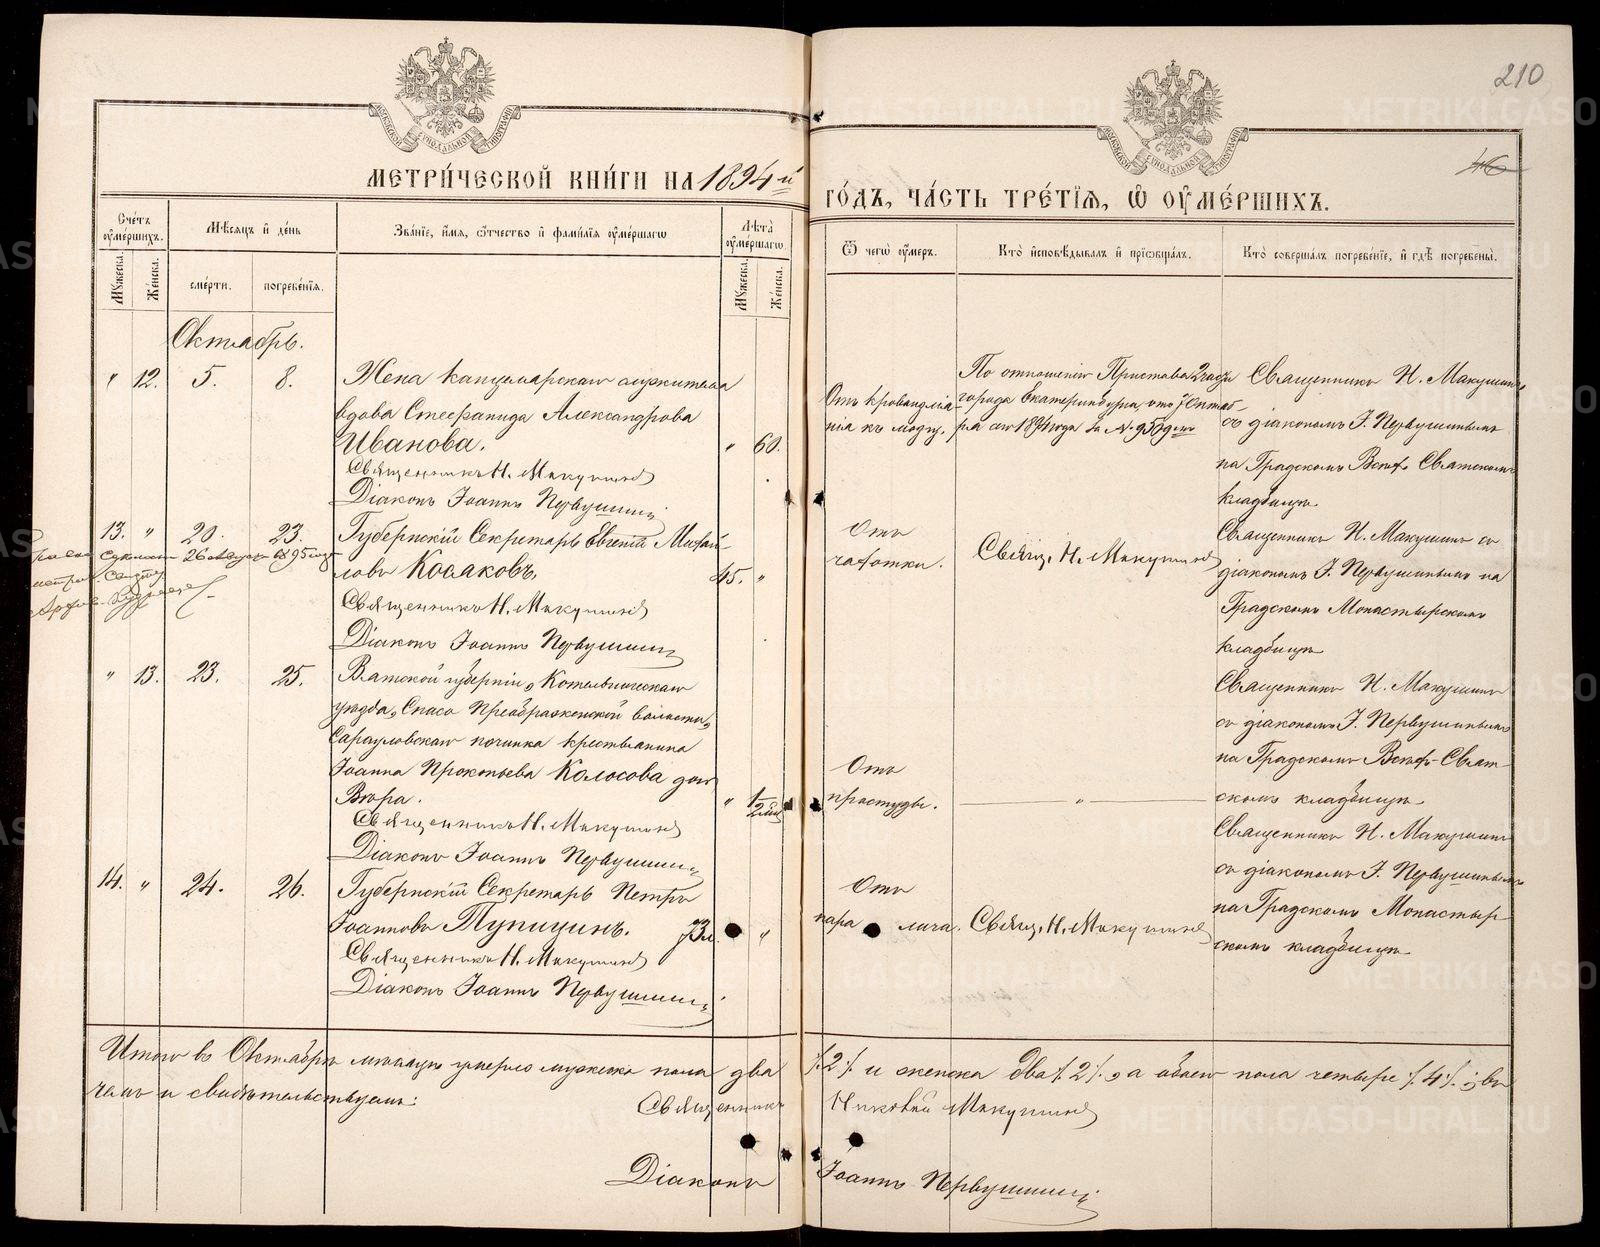 210
46
МЕТРИ́ЧЕСКОЙ КНИ́ГИ НА 1894 й
ГО́ДЪ, ЧА́СТЬ ТРЕ́ТЇѦ, Ѽ ОУМЕ́РШИХЪ.
Сче́тъ оумершихъ.
Мѣсѧцъ и день
Зва́нїе, и́мѧ, ѻ҆́тчество и҆ фами́лїѧ оуме́ршагѡ
Лѣта̀ оуме́ршагѡ.
Ѿ чегѡ̀ оу́меръ.
Кто̀ и҆сповѣ́дывалъ и҆ прїѡбща́лъ.
Кто̀ соверша́лъ погребе́нїе, и҆ гдѣ̀ погребе́ны.
Мꙋжеска.
Же́нска.
сме́рти.
погребе́нїѧ.
Мꙋжеска.
Же́нска.
Октябрь.
" 12. 5. 8.
Жена канцелярскаго служителя
вдова Стефанида Александрова
Иванова. " 60.
Священникъ Н. Макушинъ
Діаконъ Іоаннъ Первушинъ
Отъ кровоизлія-
нія къ мозгу.
По отношенію Пристава 2 части
города Екатеринбурга, отъ 7 Октяб-
ря сего 1894 года за №
Священникъ Н. Макушинъ
съ діакономъ І. Первушинымъ
на Градскомъ Всѣхъ Святскомъ
кладбищѣ
13. " 20. 23.
Губернскій Секретарь Евгеній Михай-
ловъ Косаковъ. 45. "
Священникъ Н. Макушинъ
Діаконъ Іоаннъ Первушинъ
26 Августа 1895 года
Отъ
чахотки.
Свящ. Н. Макушинъ
Священникъ Н. Макушинъ съ
діакономъ І. Первушинымъ на
Градскомъ Монастырскомъ
кладбищѣ
" 13. 23. 25.
Вятской губерніи, Котельническаго
уѣзда, Спасо Преображенской волости,
починка крестьянина
Іоанна Прокопьева Колосова дочь
Вѣра. " 1/2
Священникъ Н. Макушинъ
Діаконъ Іоаннъ Первушинъ
Отъ
простуды.
"
Священникъ Н. Макушинъ
съ діакономъ І. Первушинымъ
на Градскомъ Всѣхъ-Свят-
скомъ кладбищѣ
14. " 24. 26.
Губернскій Секретарь Петръ
Іоанновъ Тупицинъ. 73 л. "
Священникъ Н. Макушинъ
Діаконъ Іоаннъ Первушинъ
Отъ
пара лича.
Свящ. Н. Макушинъ
Священникъ Н. Макушинъ
съ діакономъ І. Первушинымъ
на Градскомъ Монастыр
скомъ кладбищѣ
Итого въ Октябрѣ мѣсяцѣ умерло мужеска пола два /.2./ и женска два /.2./, а обоего пола четыре /.4./; въ
чемъ и свидѣтельствуемъ:
Священникъ Николай Макушинъ
Діаконъ Іоаннъ Первушинъ
METRIKI.GASO-URAL.RU